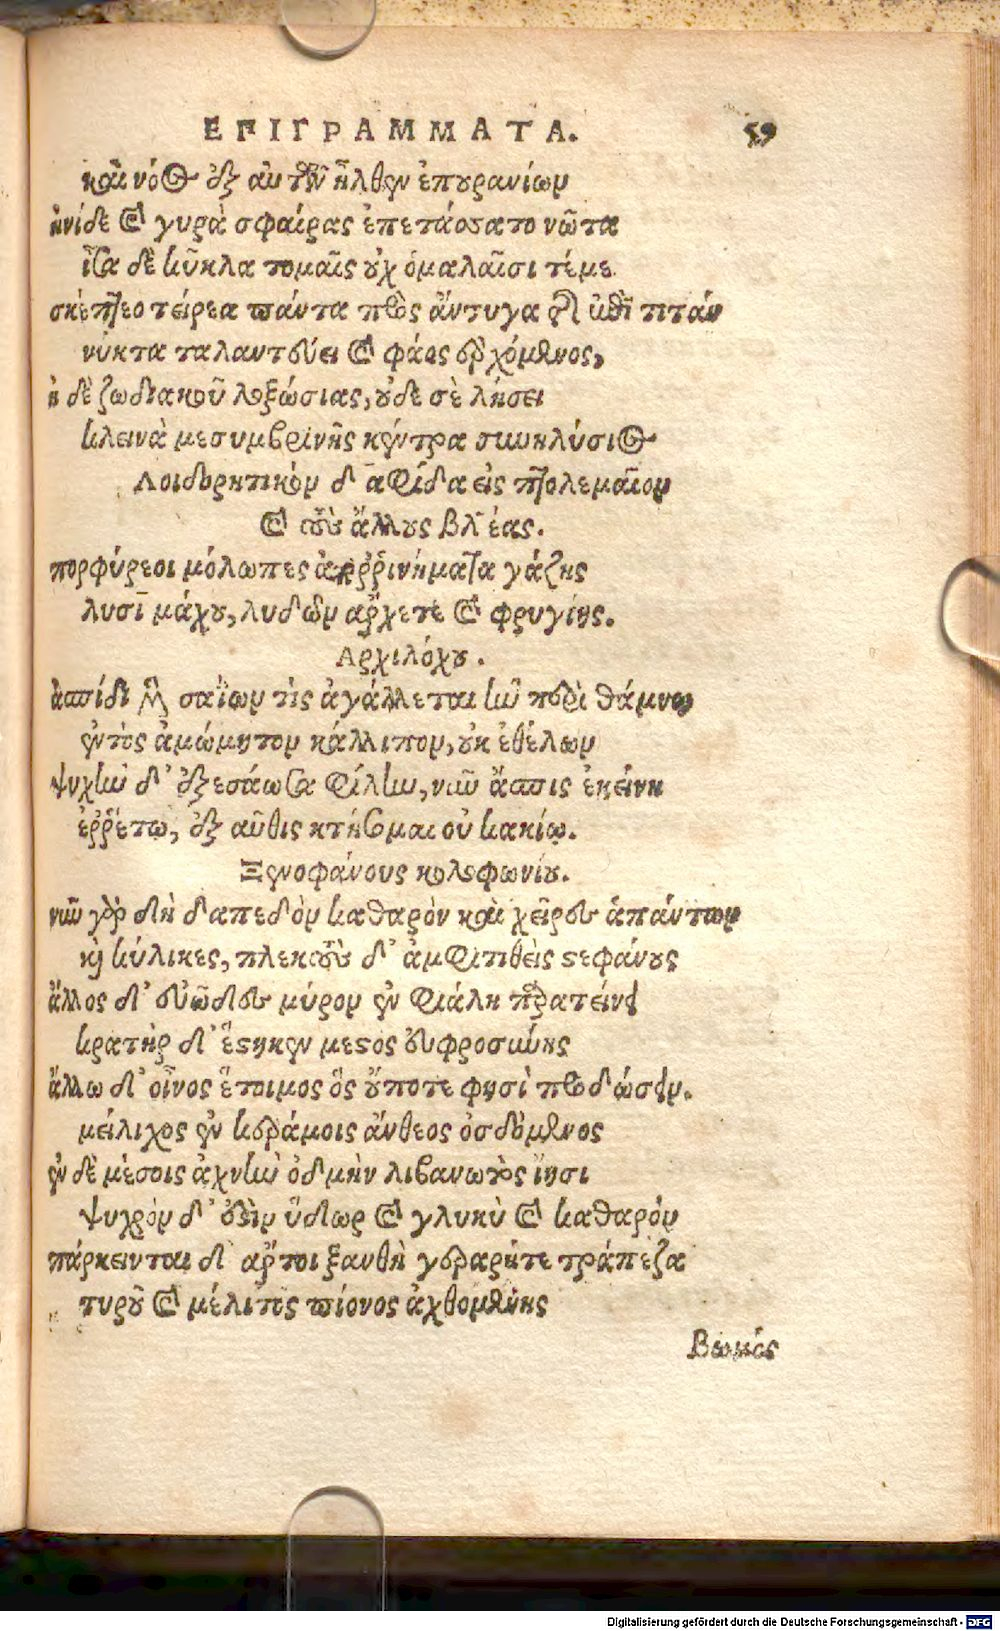 ΕΠΙΓΡΑΜΜΑΤΑ. 59
καὶ νόος ἐξ αὐτῶν ἦλθεν ἐπουρανίων
ἠνίδε καὶ γυρὰ σφαίρας ἐπετάσσατο νῶτα
ἶσα δὲ κῦκλα τομαῖς οὐχ ὁμαλαῖσι τέμε
σκέπτεο τείρεα πάντα πρὸς ἄντυγα
νύκτα ταλαντεύει καὶ φάος ἐρχόμενος,
ἠ δὲ ζωδιακοῦ λοξώσιας, οὐδε σὲ λήσει
κλεινὰ μεσυμβρίνῆς κέντρα συνηλύσιος
Λοιδορητικὸν εἰς πτολεμαῖον
καὶ τοὺς ἄλλους βασιλέας.
πορφύρεοι μόλωπες ἀπορρινήματα γάζης
λυσι μάχου, λυδῶν ἄρχετε καὶ φρυγίης.
Αρχιλόχου.
ἀσπίδι μὲν σαΐων τὶς ἀγάλλεται ἣν περὶ θάμνω
ἐντὸς ἀμώμητον κάλλιπον, οὐκ ἐθέλων
ψυχὴν δ' ἐξεσάωσα φίλην, νῦν ἄσπις ἐκείνη
ἐρρέτω, ἐξ αὖθις κτήσομαι οὐ κακίω.
Ξενοφάνους κολοφωνίου.
νῦν γὰρ δὴ δαπεδὸν καθαρὸν καὶ χεῖρες ἁπάντων
καὶ κύλικες, πλεκτοὺς δ' ἀμφιτιθεὶς στεφάνους
ἄλλος δ' εὐῶδες μύρον ἐν φιάλη παρατείνει
κρατὴρ δ' ἕστηκεν μεστος ἐυφροσύνης
ἄλλω δ' οἶνος ἕτοιμος ὃς οὔποτε φησὶ προδώσειν.
μείλιχος ἐν κεράμοις ἄνθεος ὀσδόμενος
ἐν δὲ μὲσοις ἁγνὴν ὀδμὴν λιβανωτὸς ἵησι
ψυχρὸν δ' ἐστὶν ὕδωρ καὶ γλυκὺ καὶ καθαρὸν
πάρκεινται δ' ἄρτοι ξανθὴ γεραρήτε τράπεζα
τυροῦ καὶ μέλιτος πίονος ἀχθομένης
Βωμός
Digitalisierung gefördert durch die Deutsche Forschungsgemeinschaft - DFG